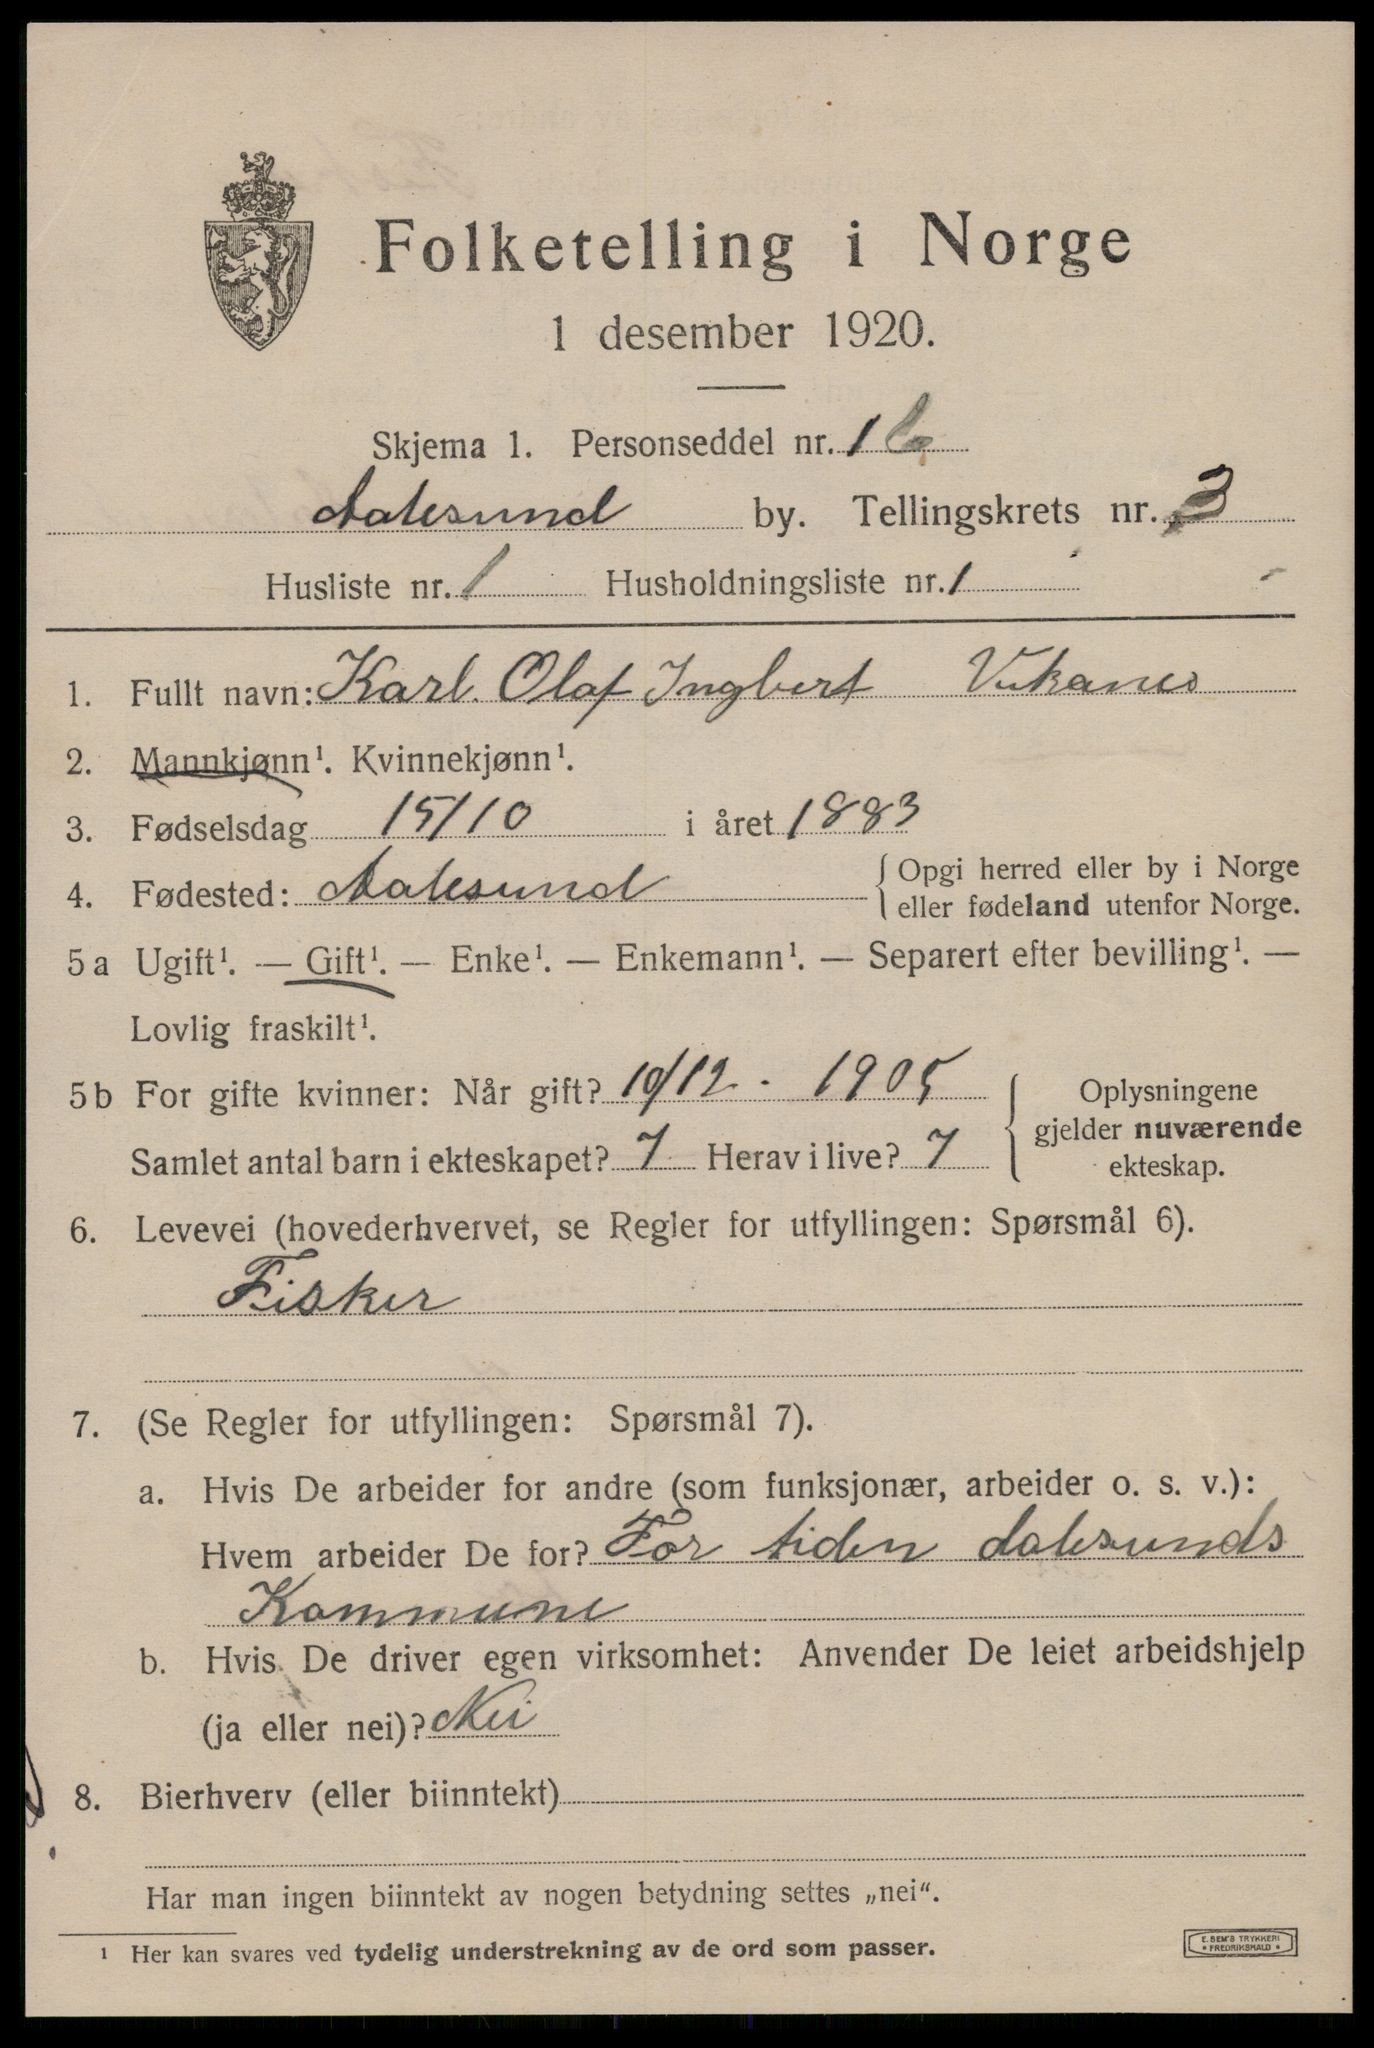 Folketelling i Norge
1 desember 1920.
Skjema 1. Personseddel nr. 1
Aalesund by. Tellingskrets nr. 3
Husliste nr. 1 Husholdningsliste nr. 1
1. Fullt navn: Karl. Olaf Ingbert
2. Mannkjønn¹. Kvinnekjønn¹.
3. Fødselsdag 15/10 i året 1883
4. Fødested: Aalesund { Opgi herred eller by i Norge
eller fødeland utenfor Norge.
5a Ugift¹. — Gift¹. — Enke¹. — Enkemann¹. — Separert efter bevilling¹. —
Lovlig fraskilt¹.
5b For gifte kvinner: Når gift? 10/12. 1905 { Oplysningene
gjelder nuværende
ekteskap.
Samlet antal barn i ekteskapet? 7 Herav i live? 7
6. Levevei (hovederhvervet, se Regler for utfyllingen: Spørsmål 6).
Fisker
7. (Se Regler for utfyllingen: Spørsmål 7).
a. Hvis De arbeider for andre (som funksjonær, arbeider o. s. v.):
Hvem arbeider De for? For tiden Aalesunds
Kommune
b. Hvis De driver egen virksomhet: Anvender De leiet arbeidshjelp
(ja eller nei)? Nei
8. Bierhverv (eller biinntekt)
Har man ingen biinntekt av nogen betydning settes „nei“.
¹ Her kan svares ved tydelig understrekning av de ord som passer.
E. SEM'S TRYKKERI
* FREDRIKSHALD *